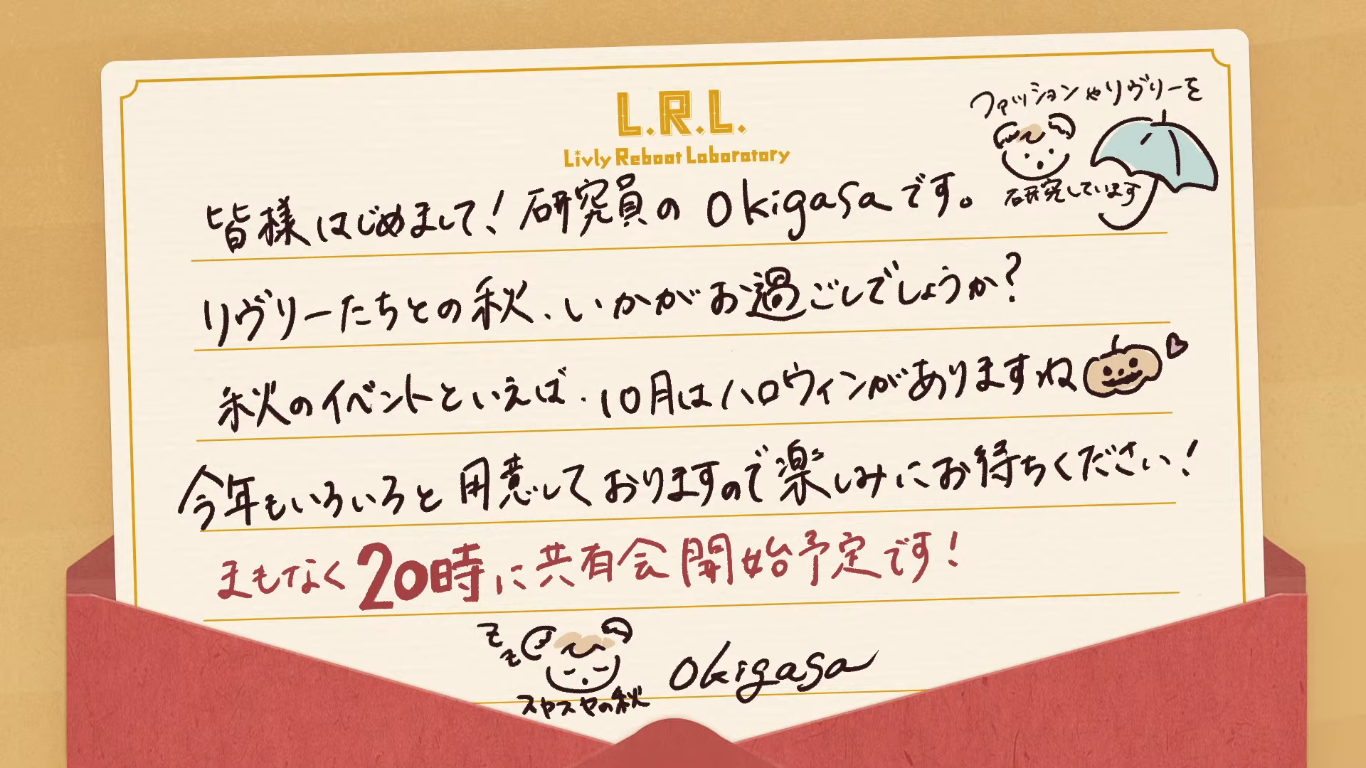 L.R.L.
Livly Reboot Laboratory
ファッションやリヴリーを
研究しています
皆様はじめまして！研究員のokigasaです。
リヴリーたちとの秋、いかがお過ごしでしょうか？
秋のイベントといえば、10月はハロウィンがありますね
今年もいろいろと用意しておりますので楽しみにお待ちください！
まもなく20時に共有会開始予定です！
zzz
スヤスヤの秋
okigasa